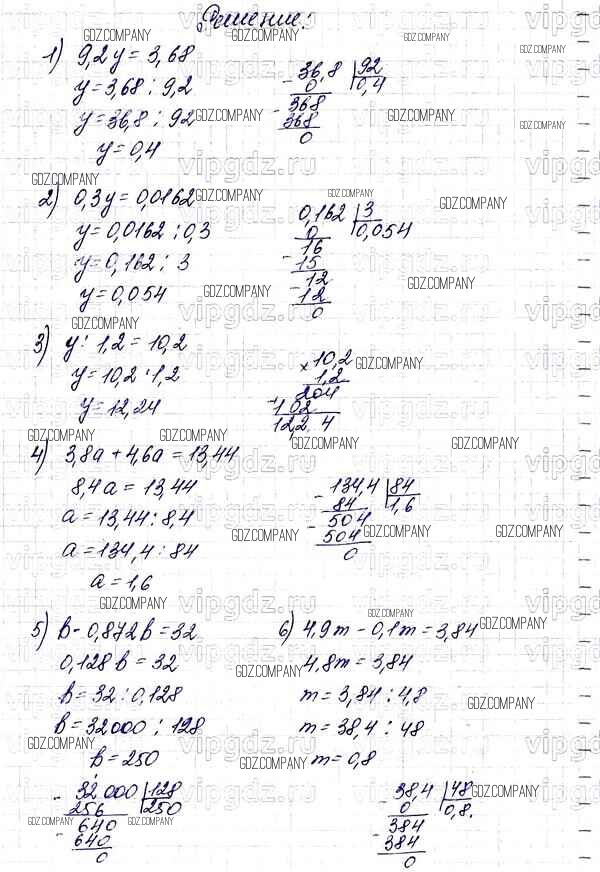 Решение:
1) 9,2y = 3,68
y = 3,68 : 9,2
y = 36,8 : 92
y = 0,4
- 36,8 | 92
0 | 0,4
- 368
368
0
2) 0,3y = 0,0162
y = 0,0162 : 0,3
y = 0,162 : 3
y = 0,054
0,162 | 3
0 | 0,054
16
- 15
12
- 12
0
3) y : 1,2 = 10,2
y = 10,2 · 1,2
y = 12,24
× 10,2
1,2
204
+ 102
122 4
4) 3,8a + 4,6a = 13,44
8,4a = 13,44
a = 13,44 : 8,4
a = 134,4 : 84
a = 1,6
- 134,4 | 84
84 | 1,6
- 504
504
0
5) b - 0,872b = 32
0,128b = 32
b = 32 : 0,128
b = 32000 : 128
b = 250
- 32000 | 128
256 | 250
- 640
640
0
6) 4,9m - 0,1m = 3,84
4,8m = 3,84
m = 3,84 : 4,8
m = 38,4 : 48
m = 0,8
- 38,4 | 48
0 | 0,8.
- 384
384
0
GDZ.COMPANY
vipgdz.ru